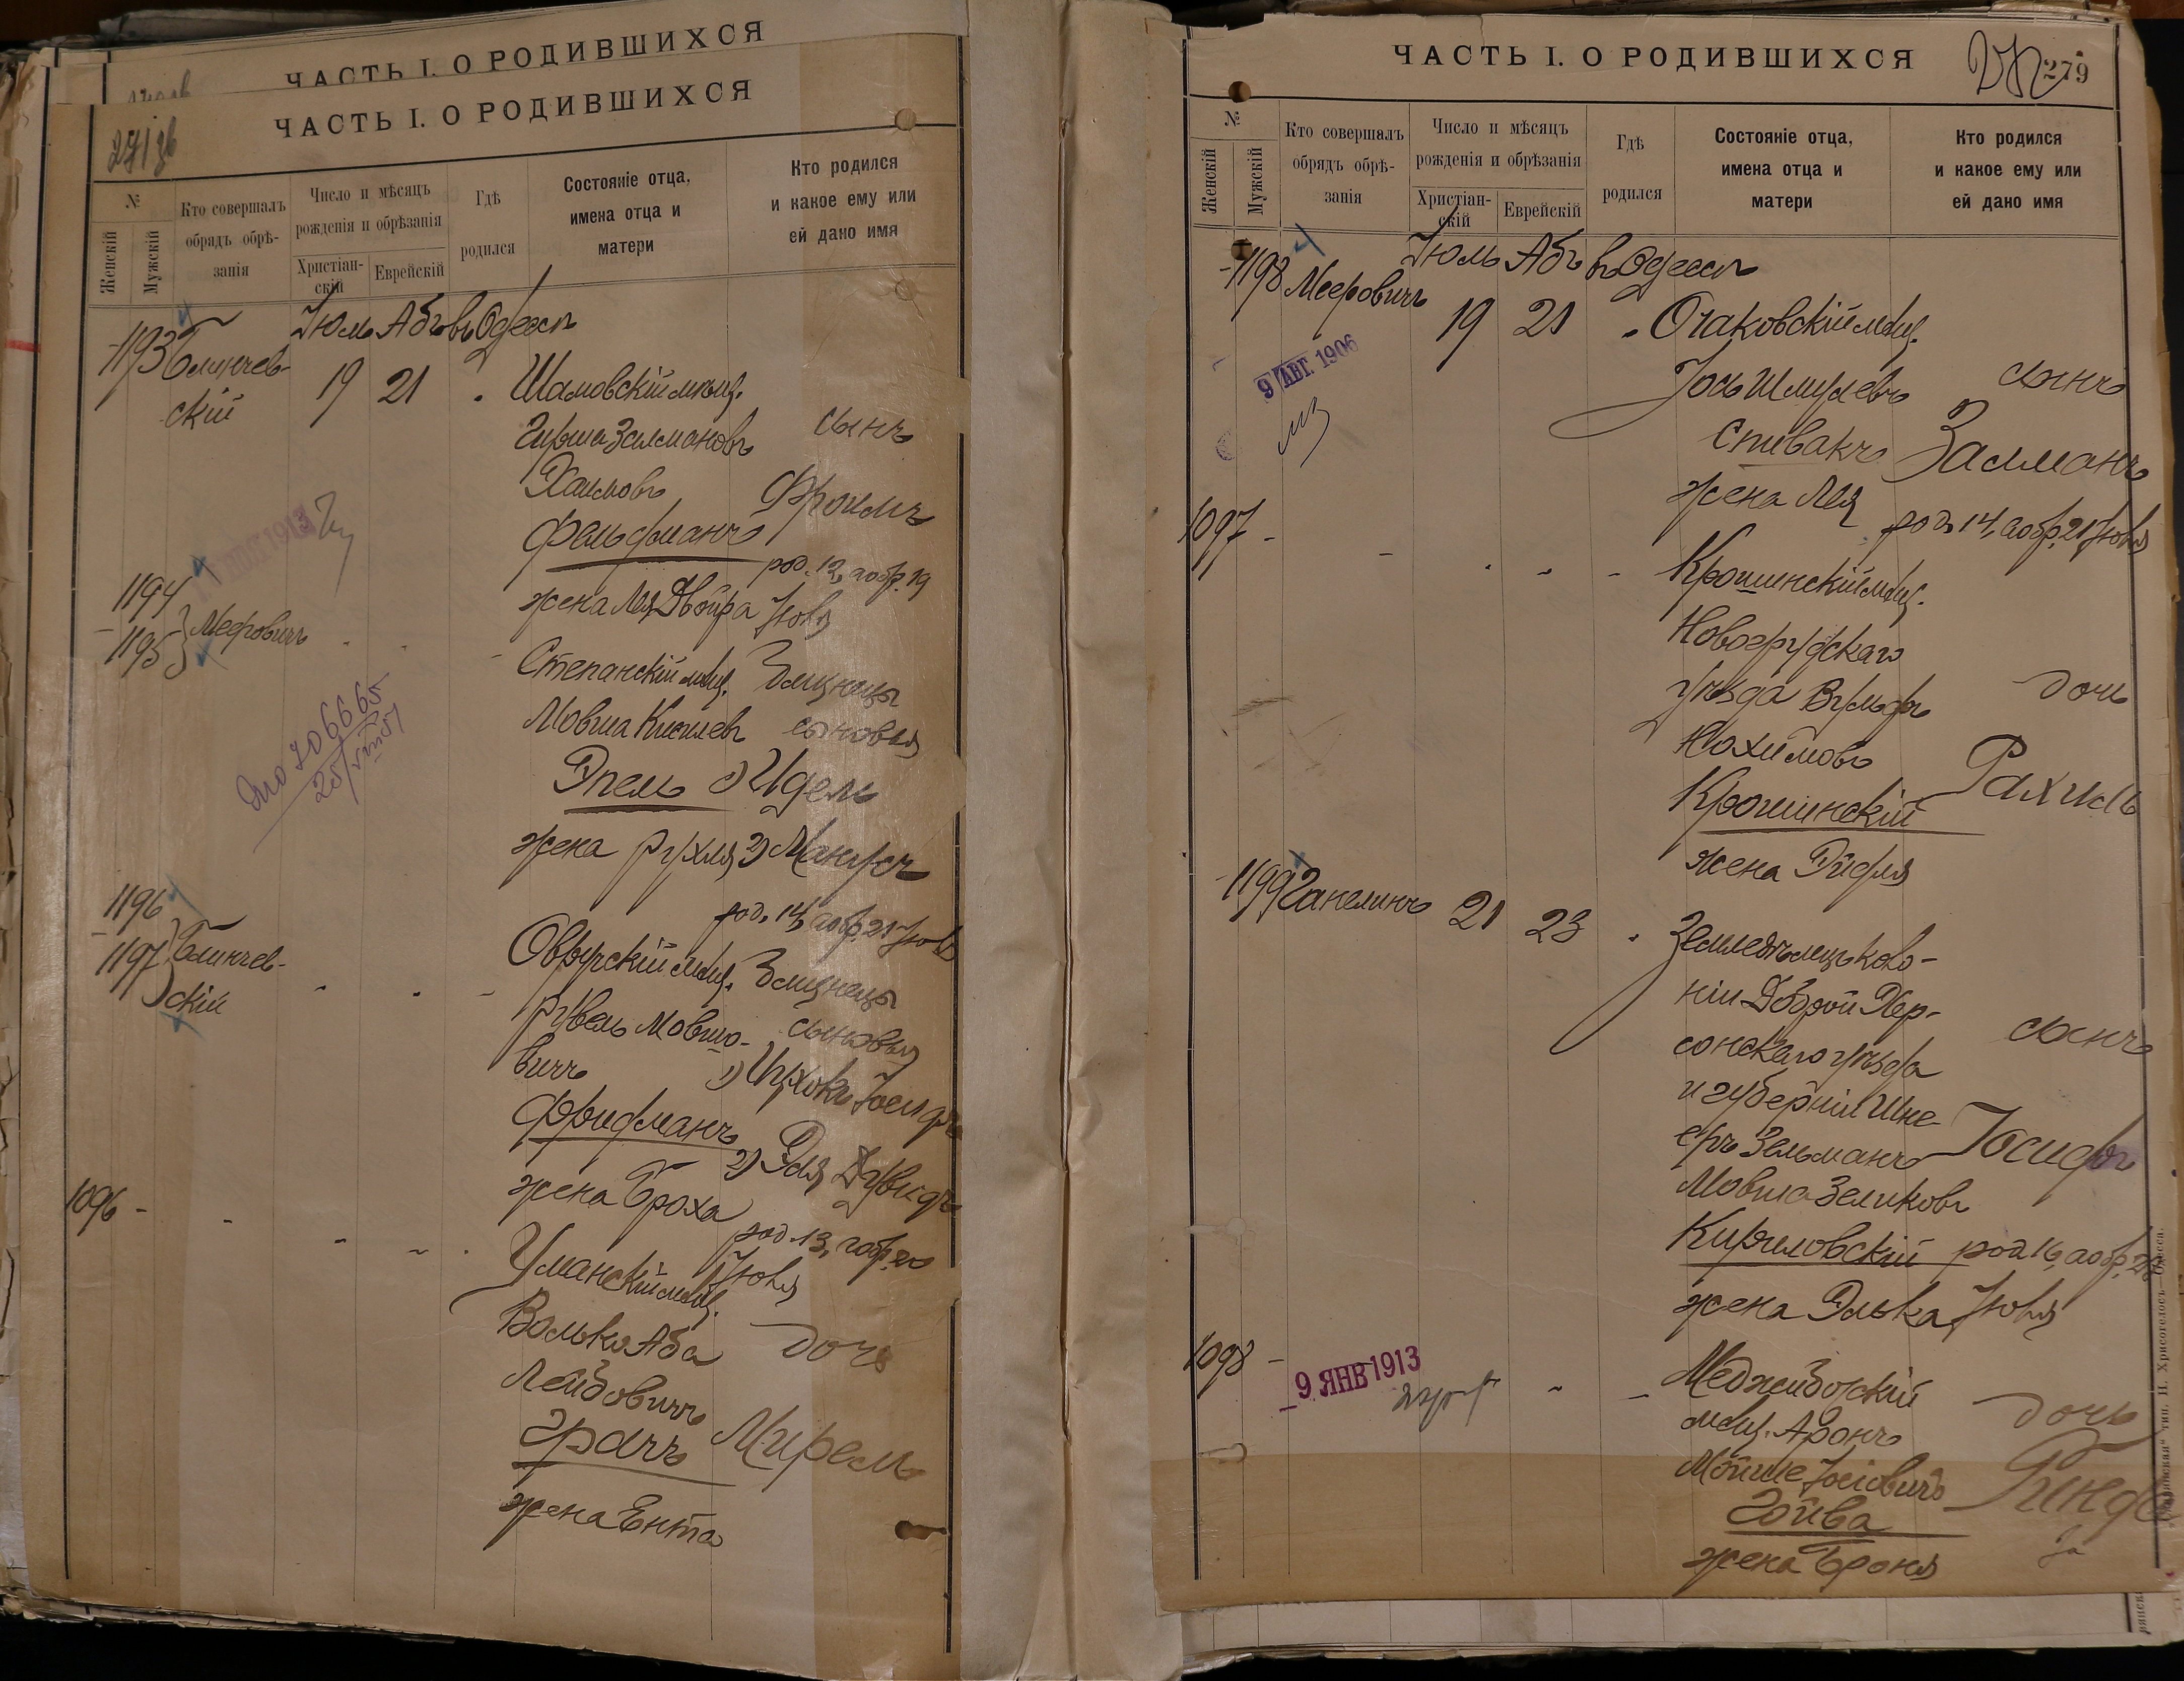 ЧАСТЬ I. О РОДИВШИХСЯ
ЧАСТЬ I. О РОДИВШИХСЯ
№
Женскій
Мужскій
Кто совершалъ
обрядъ обрѣ-
занія
Число и мѣсяцъ
рожденія и обрѣзанія
Христіан-
скій
Еврейскій
Гдѣ
родился
Состояніе отца,
имена отца и
матери
Кто родился
и какое ему или
ей дано имя
Іюль Абъ въ Одессѣ
1193 Блинчев-
скій
19 21
Шамовскій мѣщ.
Гирша Залмановъ
Хаимовъ
Фельдманъ
жена Лея Двойра
сынъ
Фроимъ
род. 12, а обр. 19
Іюля
1913
1194
1195 Мееровичъ
Степанскій мѣщ.
Мовша Кисилев
Эпель
жена Рухля
Близнецы
сыновья
1) Идель
2) Манусъ
род. 14, а обр. 21 Іюля
1196
1197 Блинчев-
скій
Овручскій мѣщ.
Рувель Мовшо-
вичъ
Фридманъ
жена Броха
Близнецы
сыновья
1) Ицхокъ Іосифъ
2) Эля Дувидъ
род. 13, а обр. 20
Іюля
1096 -
Уманскій мѣщ.
Волько Аба
Лейбовичъ
Грачъ
жена Ента
дочь
Мирель
ЧАСТЬ I. О РОДИВШИХСЯ
279
№
Женскій
Мужскій
Кто совершалъ
обрядъ обрѣ-
занія
Число и мѣсяцъ
рожденія и обрѣзанія
Христіан-
скій
Еврейскій
Гдѣ
родился
Состояніе отца,
имена отца и
матери
Кто родился
и какое ему или
ей дано имя
Іюль Абъ въ Одессѣ
1198 Мееровичъ
19 21
Очаковскій мѣщ.
Іось Шмулевъ
Спивакъ
жена Лея
сынъ
Залманъ
род. 14, а обр. 21 Іюля
9 АВГ. 1906
1097 -
Крошинскій мѣщ.
Новогрудскаго
уѣзда Вульфъ
Нохимовъ
Крошинскій
жена Рйфля
дочь
Рахиль
1199 Ганелинъ
21 23
Земледѣлецъ коло-
ніи Доброй Хер-
сонскаго уѣзда
и губерніи Шне-
еръ Зельманъ
Мовша Зеликовъ
Кириловскій
жена Элька
сынъ
Іосифъ
род. 16, а обр. 23
Іюля
1098 -
9 ЯНВ 1913
Меджибожскій
мѣщ. Аронъ
Мойше Іосіовичъ
Гойва
жена Броня
дочь